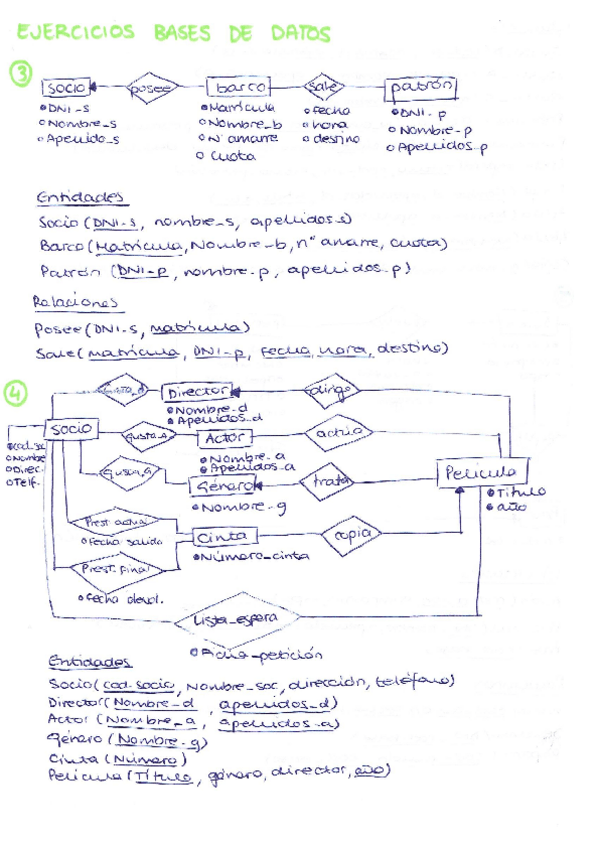 EJERCICIOS BASES DE DATOS
③
socio posee barco sale patrón
DNI-s Matrícula fecha DNI-p
Nombre-s Nombre-b hora Nombre-p
Apellido-s Nº amarre destino Apellidos-p
Cuota
Entidades
Socio (DNI-s, nombre-s, apellidos-s)
Barco (Matrícula, Nombre-b, nº amarre, cuota)
Patrón (DNI-p, nombre-p, apellidos-p)
Relaciones
Posee (DNI-s, matrícula)
Sale (matrícula, DNI-p, fecha, hora, destino)
④
Director dirige
Nombre-d
Apellidos-d
Socio Gusta-a Actor actúa
Nombre Nombre-a
Direc. Apellidos-a
Telf.
Género trata Película
Nombre-g Título
año
Prest actual
Fecha salida
Cinta copia
Número-cinta
Prest. final
fecha devol.
Lista-espera
Fecha-petición
Entidades
Socio (cod-socio, Nombre-soc, dirección, teléfono)
Director (Nombre-d, apellidos-d)
Actor (Nombre-a, apellidos-a)
Género (Nombre-g)
Cinta (Número)
Película (Título, género, director, año)